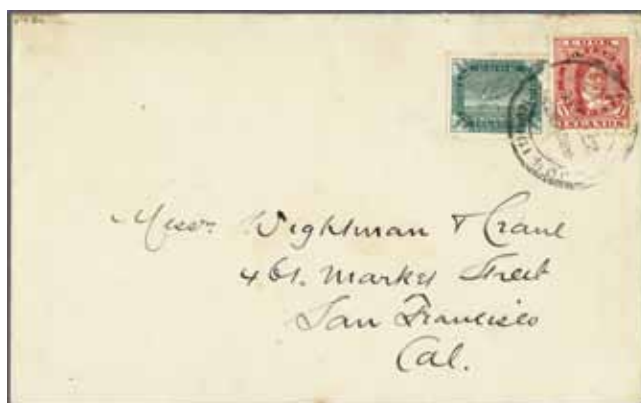 COOK
ISLANDS
Messrs Wightman & Crane
461. Market Street
San Francisco
Cal.